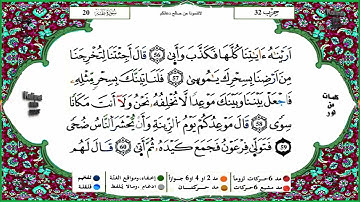 حزب 32
لاتنسونا من صالح دعائكم
سورة طه
20
أَرَيْنَٰهُ ءَايَٰتِنَا كُلَّهَا فَكَذَّبَ وَأَبَىٰ ٥٦ قَالَ أَجِئْتَنَا لِتُخْرِجَنَا
مِنْ أَرْضِنَا بِسِحْرِكَ يَٰمُوسَىٰ ٥٧ فَلَنَأْتِيَنَّكَ بِسِحْرٍ مِّثْلِهِۦ
فَٱجْعَلْ بَيْنَنَا وَبَيْنَكَ مَوْعِدًا لَّا نُخْلِفُهُۥ نَحْنُ وَلَآ أَنتَ مَكَانًا
سُوًى ٥٨ قَالَ مَوْعِدُكُمْ يَوْمُ ٱلزِّينَةِ وَأَن يُحْشَرَ ٱلنَّاسُ ضُحًى
٥٩ فَتَوَلَّىٰ فِرْعَوْنُ فَجَمَعَ كَيْدَهُۥ ثُمَّ أَتَىٰ ٦٠ قَالَ لَهُم
كلمات
من
نور
مد 6 حركات لزوما
مد 2 او 4 او 6 جوازاً
إخفاء، ومواقع الغنة
تفخيم
مد مشبع 6 حركات
مد حركتان
ادغام، ومالا يلفظ
قلقلة